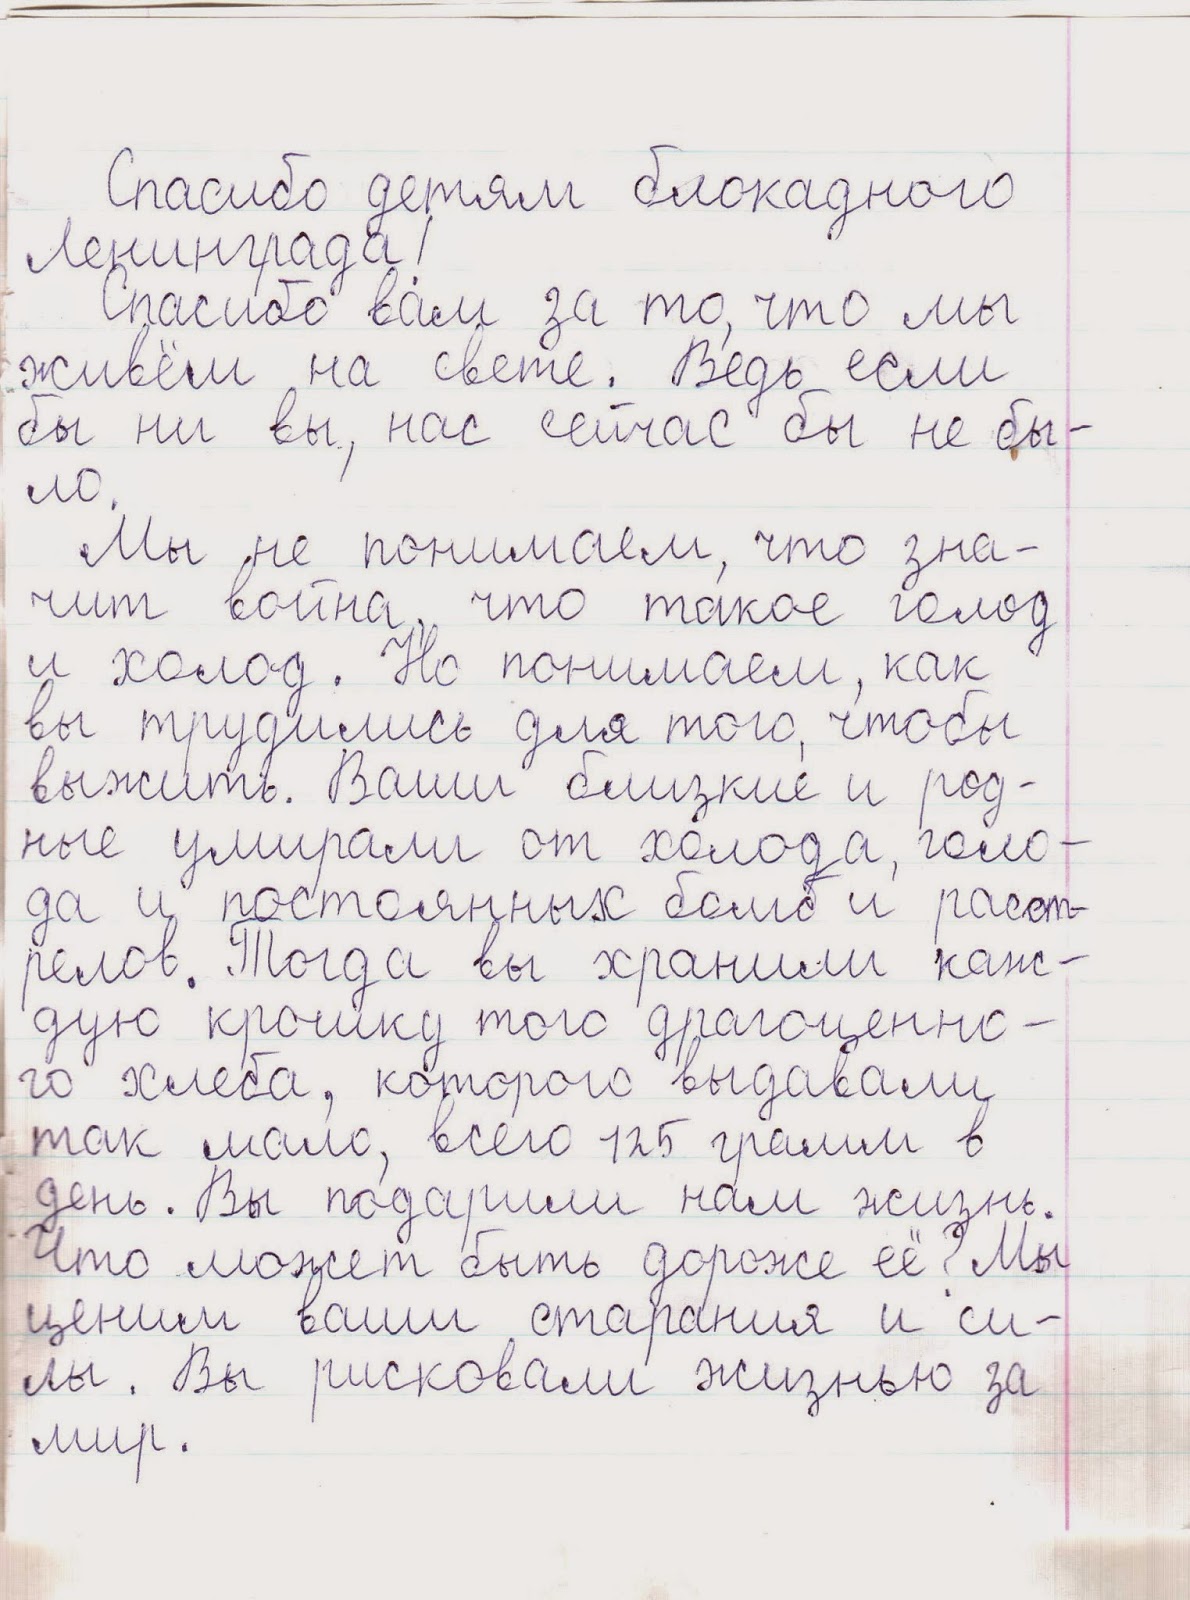 Спасибо детям блокадного
Ленинграда!
Спасибо вам за то, что мы
живём на свете. Ведь если
бы ни вы, нас сейчас бы не бы-
ло.
Мы не понимаем, что зна-
чит война, что такое голод
и холод. Но понимаем, как
вы трудились для того, чтобы
выжить. Ваши близкие и род-
ные умирали от холода, голо-
да и постоянных бомб и расст-
релов. Тогда вы хранили каж-
дую крошку того драгоценно-
го хлеба, которого выдавали
так мало, всего 125 грамм в
день. Вы подарили нам жизнь.
Что может быть дороже её? Мы
ценим ваши старания и си-
лы. Вы рисковали жизнью за
мир.